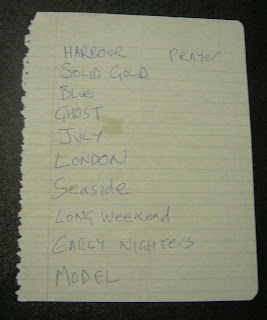 HARBOUR PRAYER
SOLID GOLD
BLUE
GHOST
JULY
LONDON
Seaside
LONG WEEKEND
EARLY NIGHTERS
MODEL